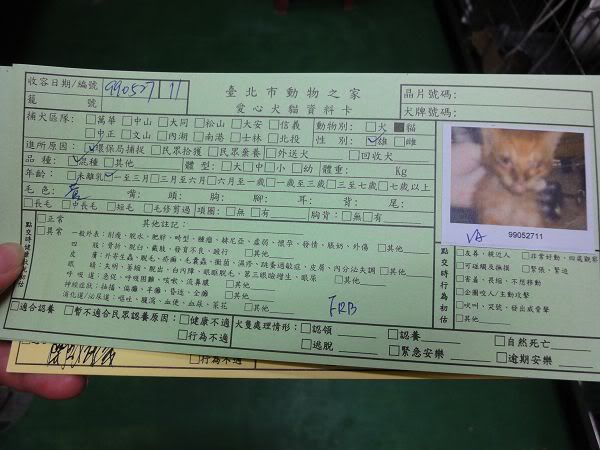 收容日期/編號 990527 11
臺北市動物之家
籠 號
愛心犬貓資料卡
晶片號碼:
犬牌號碼:
捕犬區隊: □萬華 □中山 □大同 □松山 □大安 □信義
□中正 □文山 □內湖 □南港 □士林 □北投
動物別: □犬 ■貓
性 別: ☑雄 □雌
進所原因: ☑環保局捕捉 □民眾拾獲 □民眾棄養 □外送犬 □回收犬
品 種: ☑混種 □其他 體 型: □大 □中 □小 □幼 體重: Kg
年齡: □未離乳 ☑一至三月 □三至六月 □六月至一歲 □一至三歲 □三至七歲 □七歲以上
毛 色: 黃 嘴: 頭: 胸: 腳: 耳: 背: 尾:
□長毛 □中長毛 □短毛 □毛修剪過 項圈: □無 □有 胸背: □無 □有
99052711
點交時健康狀況初估
□正常 其他註記:
□異常
一般外表:削瘦、脫水、肥胖、畸型、腫瘤、赫尼亞、虛弱、懷孕、發情、脹奶、外傷 □其他
四 肢:骨折、脫臼、截肢、發育不良、跛行 □其他
皮 膚:外寄生蟲、脫毛、疥癬、毛囊蟲、黴菌、濕疹、跳蚤過敏症、皮屑、肉分泌失調 □其他
眼 睛:失明、萎縮、脫出、白內障、眼瞼脫毛、第三眼瞼增生、眼屎 □其他
呼 吸 道:急促、呼吸困難、咳嗽、流鼻膿 □其他
神經症狀:抽搐、偏癱、半癱、昏迷、全癱 □其他
消化道/泌尿道:嘔吐、腹瀉、血便、血尿、菜花 □其他
FRB
點交時行為初估
□友善、親近人 □非常好動、四處觀察
□可送觸及撫摸 □緊張、緊迫
□害羞、畏縮、不想移動
□企圖咬人/主動攻擊
□吠叫、哭號、發出威脅聲
□其他
□適合認養 □暫不適合民眾認養原因: □健康不適
□行為不適
犬隻處理情形: □認領 □認養 □自然死亡
□逃脫 □緊急安樂 □逾期安樂
□行為不適